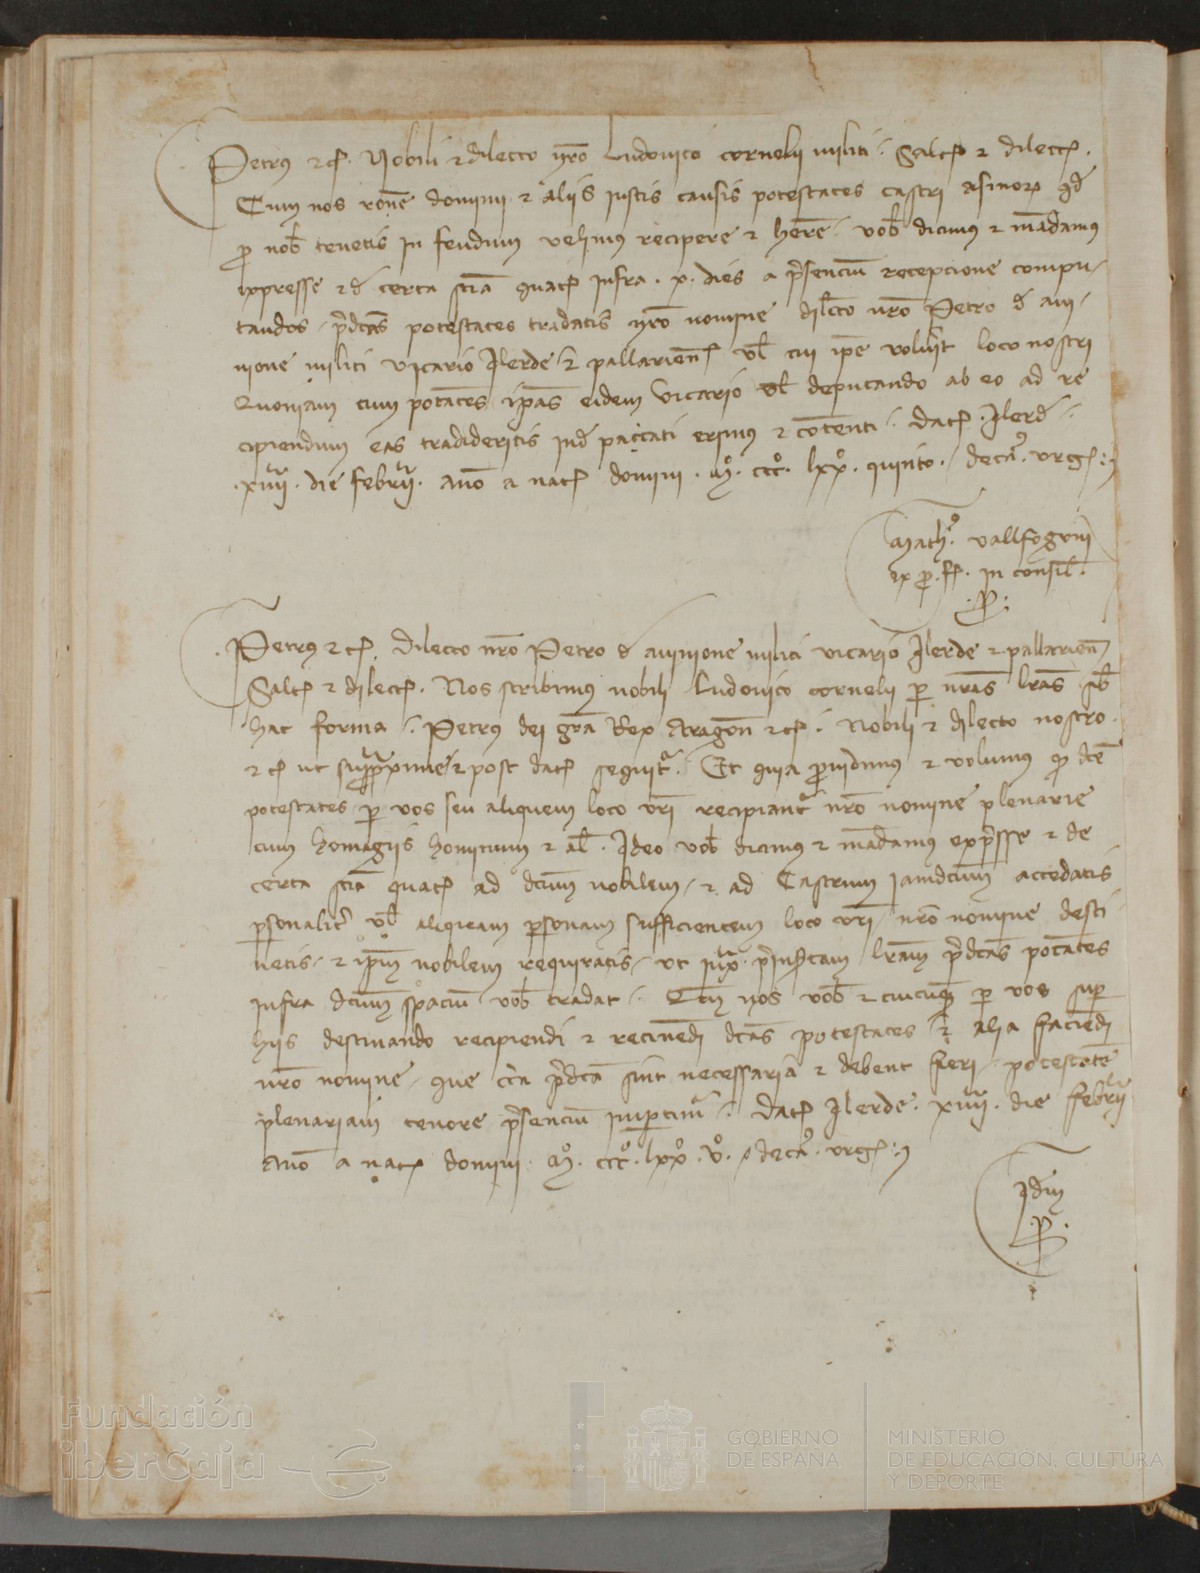 Petrus etc. Nobili et dilecto nro Ludovico cornelii militi. Saltm et dilectm.
Cum nos rone dominii et aliis justis causis potestates castri asinorum qd
pro nob tenetis in feudum velimus recipere et here. vob dicimus et mandamus
expresse et de certa scia quatenus infra .x. dies a presencium recepcione compu-
tandos, predcas potestates tradatis nro nomine dilcto nro Petro d avi-
nione militi vicario Ilerde et pallariens vl cui ipe voluerit loco nostri
Quoniam cum potates ipas eidem vicario vl deputando ab eo ad re
cipiendum eas tradideritis inde paccati erimus et contenti. Dat. Ilerde.
.xiiii. die febrii. Anno a nat domini .Mº. cccº. lxxº. quinto. decan. urgell.
Matheus vallfogoni
ex pro. ff. in consil.
.p.
Petrus etc. Dilecto nro Petro d avinione militi vicario Ilerde et pallariens
Saltm et dilectm. Nos scribimus nobili Ludovico cornelii per nras lras sub
hac forma. Petrus dei gra Rex Aragon etc. Nobili et dilecto nostro.
etc ut supra proxime et post dat sequitur. Et quia providimus et volumus quod dce
potestates per vos seu aliquem loco vri recipiantur nro nomine plenarie
cum homagiis hominum et al. Ideo vob dicimus et mandamus expresse et de
certa scia quatenus ad dcum nobilem, et ad Castrum jamdcum accedatis
personaliter vl aliquam personam sufficientem loco vri, nro nomine desti
netis, et ipm nobilem requiratis, ut juxta preinsertam lram predcas potates
infra dcum spacium vob tradat. Cum nos vob et cuicumque per vos super
hiis destinando recipiendi et retinendi dcas potestates et alia faciendi
nro nomine, que circa predca sint necessaria et debent fieri, potestate
plenariam tenore presencium impertimur. Dat Ilerde .xiiii. die febrii
Anno a nat domini .Mº. cccº. lxxº. vº. decan. urgell.
Idem
.p.
Fundación
iberCaja
GOBIERNO
DE ESPAÑA
MINISTERIO
DE EDUCACIÓN, CULTURA
Y DEPORTE